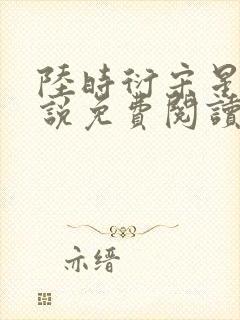 陸時衍宋星
說免費閱讀
亦缙